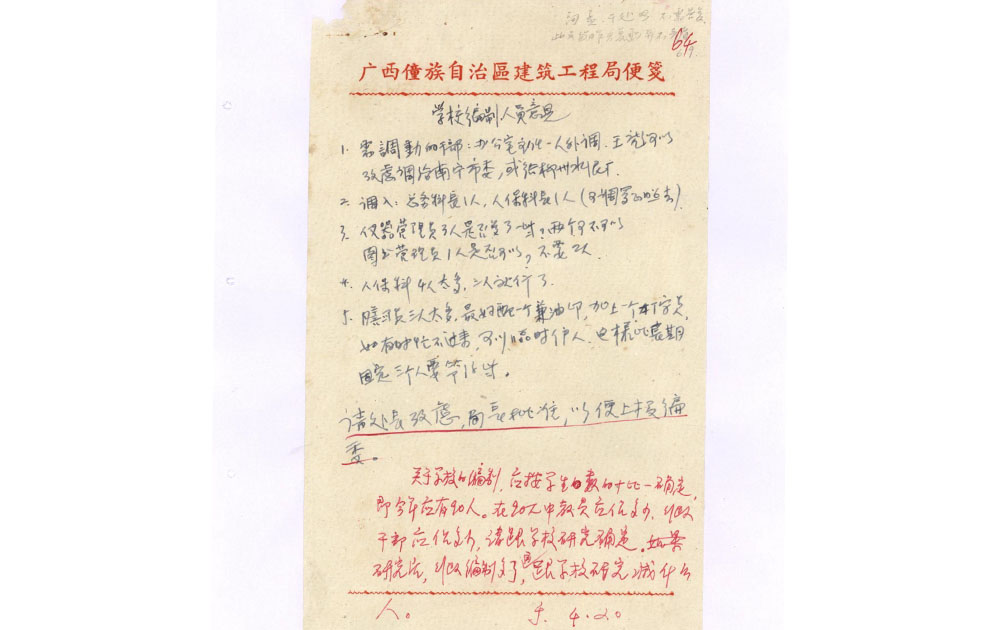 64
广西僮族自治區建筑工程局便箋
学校编制人员意见
1. 需調動的干部：办公室主任一人外调.王
攷虑调给南宁市委，或给柳州水
二 调入：总务科長1人，人保科長1人（
3. 仪器管理员3人是否多了一些？两个可不可以
图书管理员1人是否可以，不要2人
4. 人保科4人太多，二人就行了.
5. 謄写员三人太多，最好配一个兼油印，加上一个打字员，
如有时忙不过来，可以临时伊人，这样比長期
固定三个人要节省些。
请处長攷虑，局長批准，以便上报编
委。
关于学校的编制，应按学生数的十比一确定，
即今年应有90人。在90人中教员应佔多少，行政
干部应佔多少，请跟学校研究确定。如果
研究后，行政编制多了，跟学校研究减什么
人。
4.20